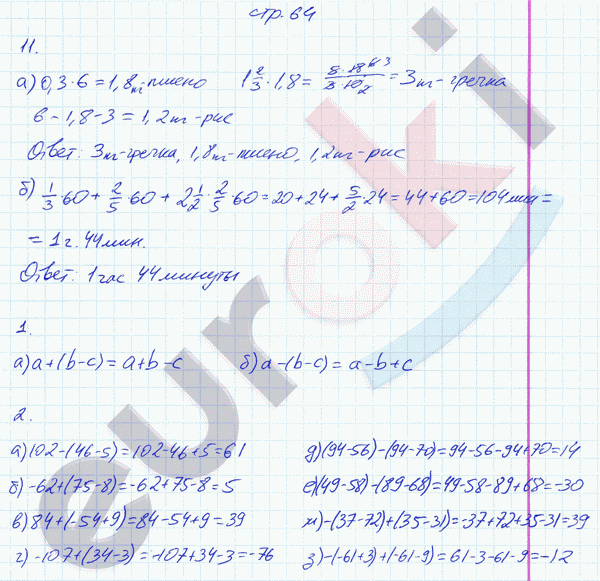 стр. 64
11.
а) 0,3·6=1,8кг-пшено 1 2/3·1,8= 5·18 6 3/3 10 2 =3кг-гречка
6-1,8-3=1,2кг-рис
Ответ: 3кг-гречка, 1,8кг-пшено, 1,2кг-рис
б) 1/3·60+2/5·60+2 1/2·2/5·60=20+24+5/2·24=44+60=104мин=
=1г.44мин.
Ответ: 1час 44минуты
1.
а) a+(b-c)=a+b-c б) a-(b-c)=a-b+c
2.
а) 102-(46-5)=102-46+5=61 д) (94-56)-(94-70)=94-56-94+70=14
б) -62+(75-8)=-62+75-8=5 е) (49-58)-(89-68)=49-58-89+68=-30
в) 84+(-54+9)=84-54+9=39 ж) -(37-72)+(35-31)=-37+72+35-31=39
г) -107+(34-3)=-107+34-3=-76 з) -(-61+3)+(-61-9)=61-3-61-9=-12
euroki